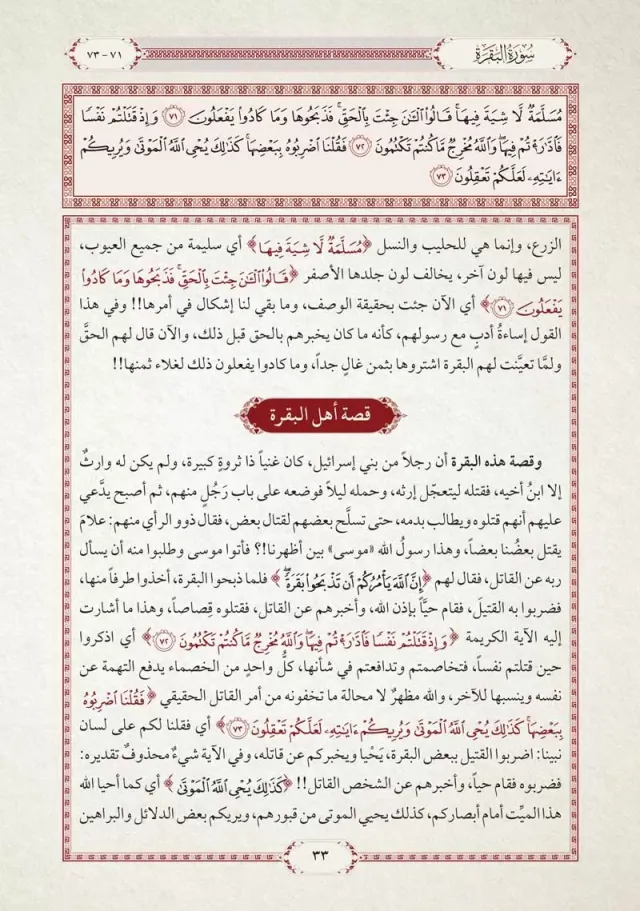 سُورَةُ البَقَرَة
٧١ - ٧٣
مُسَلَّمَةٌ لَّا شِيَةَ فِيهَا ۚ قَالُوا۟ ٱلْـَٰٔنَ جِئْتَ بِٱلْحَقِّ ۚ فَذَبَحُوهَا وَمَا كَادُوا۟ يَفْعَلُونَ ٧١ وَإِذْ قَتَلْتُمْ نَفْسًا
فَٱدَّٰرَْٰٔتُمْ فِيهَا ۖ وَٱللَّهُ مُخْرِجٌ مَّا كُنتُمْ تَكْتُمُونَ ٧٢ فَقُلْنَا ٱضْرِبُوهُ بِبَعْضِهَا ۚ كَذَٰلِكَ يُحْىِ ٱللَّهُ ٱلْمَوْتَىٰ وَيُرِيكُمْ
ءَايَـٰتِهِۦ لَعَلَّكُمْ تَعْقِلُونَ ٧٣
الزرع، وإنما هي للحليب والنسل ﴿مُسَلَّمَةٌ لَّا شِيَةَ فِيهَا﴾ أي سليمة من جميع العيوب،
ليس فيها لون آخر، يخالف لون جلدها الأصفر ﴿قَالُوا۟ ٱلْـَٰٔنَ جِئْتَ بِٱلْحَقِّ ۚ فَذَبَحُوهَا وَمَا كَادُوا۟
يَفْعَلُونَ ٧١﴾ أي الآن جئت بحقيقة الوصف، وما بقي لنا إشكال في أمرها!! وفي هذا
القول إساءةُ أدبٍ مع رسولهم، كأنه ما كان يخبرهم بالحق قبل ذلك، والآن قال لهم الحقَّ
ولمَّا تعيَّنت لهم البقرة اشتروها بثمن غالٍ جداً، وما كادوا يفعلون ذلك لغلاء ثمنها!!
قصة أهل البقرة
وقصة هذه البقرة أن رجلاً من بني إسرائيل، كان غنياً ذا ثروةٍ كبيرة، ولم يكن له وارثٌ
إلا ابنُ أخيه، فقتله ليتعجّل إرثه، وحمله ليلاً فوضعه على باب رَجُلٍ منهم، ثم أصبح يدَّعي
عليهم أنهم قتلوه ويطالب بدمه، حتى تسلَّح بعضهم لقتال بعض، فقال ذوو الرأي منهم: علامَ
يقتل بعضُنا بعضاً، وهذا رسولُ الله «موسى» بين أظهرنا!؟ فأتوا موسى وطلبوا منه أن يسأل
ربه عن القاتل، فقال لهم ﴿إِنَّ ٱللَّهَ يَأْمُرُكُمْ أَن تَذْبَحُوا۟ بَقَرَةً ۖ﴾ فلما ذبحوا البقرة، أخذوا طرفاً منها،
فضربوا به القتيلَ، فقام حيَّاً بإذن الله، وأخبرهم عن القاتل، فقتلوه قِصاصاً، وهذا ما أشارت
إليه الآية الكريمة ﴿وَإِذْ قَتَلْتُمْ نَفْسًا فَٱدَّٰرَْٰٔتُمْ فِيهَا ۖ وَٱللَّهُ مُخْرِجٌ مَّا كُنتُمْ تَكْتُمُونَ ٧٢﴾ أي اذكروا
حين قتلتم نفساً، فتخاصمتم وتدافعتم في شأنها، كلُّ واحدٍ من الخصماء يدفع التهمة عن
نفسه وينسبها للآخر، والله مظهرٌ لا محالة ما تخفونه من أمر القاتل الحقيقي ﴿فَقُلْنَا ٱضْرِبُوهُ
بِبَعْضِهَا ۚ كَذَٰلِكَ يُحْىِ ٱللَّهُ ٱلْمَوْتَىٰ وَيُرِيكُمْ ءَايَـٰتِهِۦ لَعَلَّكُمْ تَعْقِلُونَ ٧٣﴾ أي فقلنا لكم على لسان
نبينا: اضربوا القتيل ببعض البقرة، يَحْيا ويخبركم عن قاتله، وفي الآية شيءٌ محذوفٌ تقديره:
فضربوه فقام حياً، وأخبرهم عن الشخص القاتل!! ﴿كَذَٰلِكَ يُحْىِ ٱللَّهُ ٱلْمَوْتَىٰ﴾ أي كما أحيا الله
هذا الميِّت أمام أبصاركم، كذلك يحيي الموتى من قبورهم، ويريكم بعض الدلائل والبراهين
٣٣